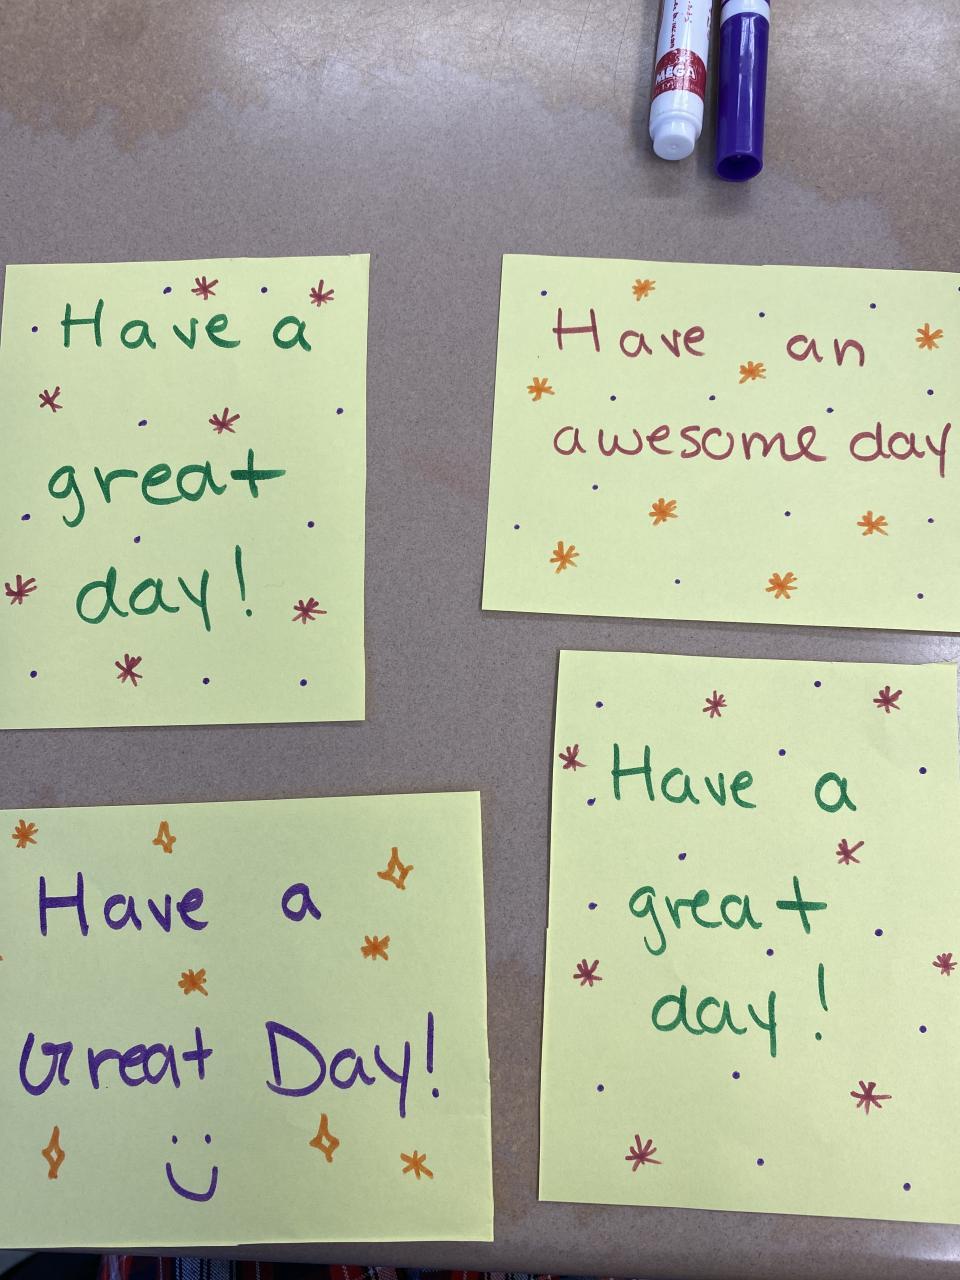 MEGA
Have a
great
day!
Have an
awesome day
Have a
Great Day!
Have a
great
day!